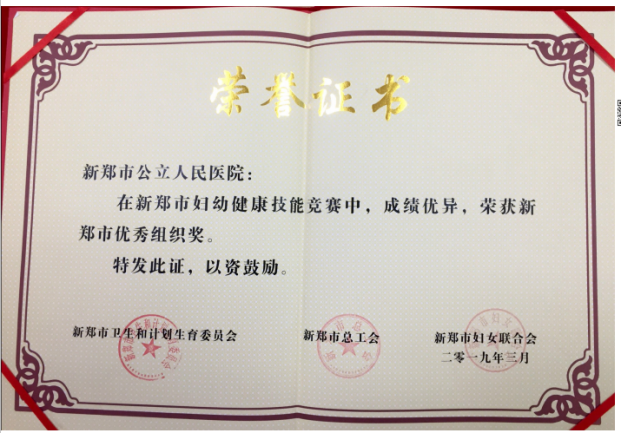 荣誉证书
新郑市公立人民医院：
在新郑市妇幼健康技能竞赛中，成绩优异，荣获新
郑市优秀组织奖。
特发此证，以资鼓励。
新郑市卫生和计划生育委员会 新郑市总工会 新郑市妇女联合会
二零一九年三月